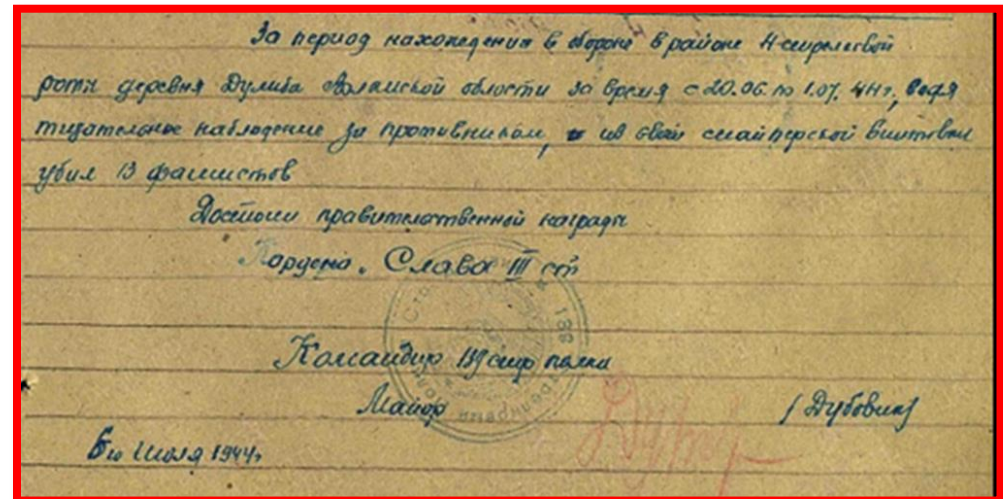 За период нахождения в обороне в районе 4-стрелковой
роты деревня Дулиба Волынской области за время с 20.06 по 1.07.44г, ведя
тщательное наблюдение за противником, из свой снайперской винтовки
убил 13 фашистов
Достоин правительственной награды
Ордена „Слава III ст
Командир 189 стр полка
Майор (Дубовик)
6го Июля 1944г